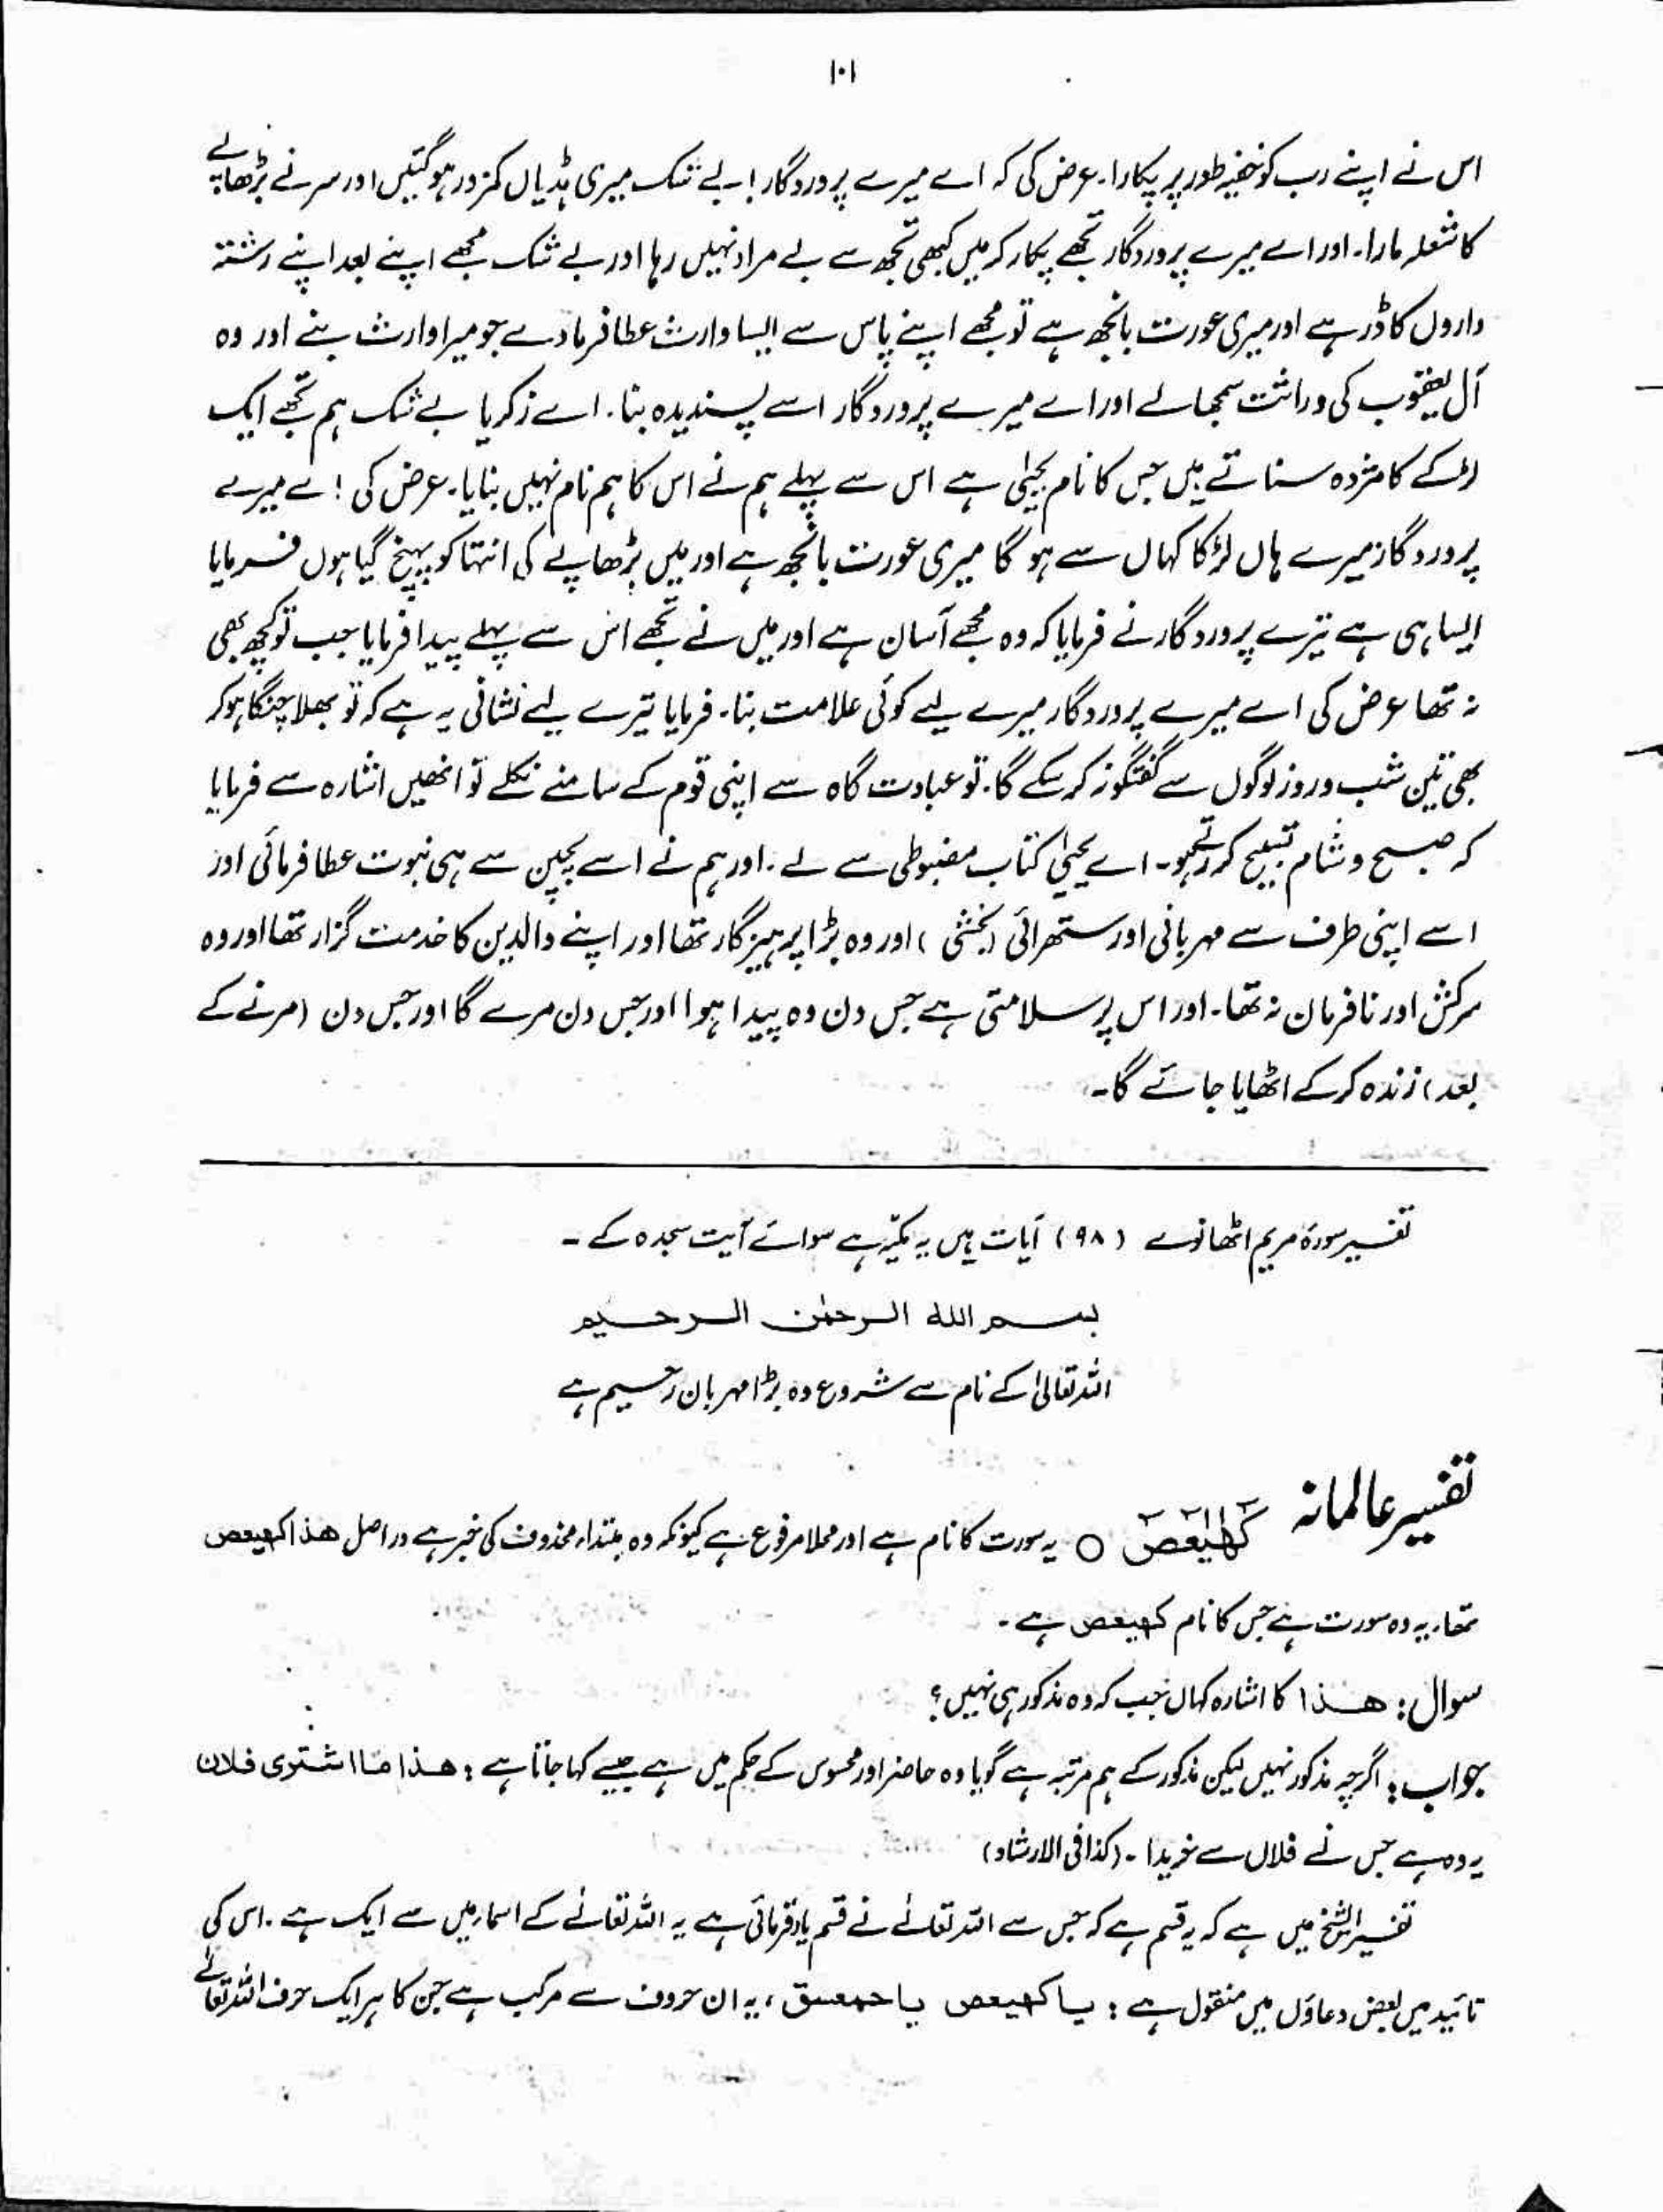 ۱۰۱
اس نے اپنے رب کو خفیہ طور پر پکارا۔ عرض کی کہ اے میرے پروردگار! بے شک میری ہڈیاں کمزور ہوگئیں اور سر نے بڑھاپے
کا شعلہ مارا۔ اور اے میرے پروردگار تجھے پکار کر میں کبھی تجھ سے بے مراد نہیں رہا اور بے شک مجھے اپنے بعد اپنے رشتہ
داروں کا ڈر ہے اور میری عورت بانجھ ہے تو مجھے اپنے پاس سے ایسا وارث عطا فرما دے جو میرا وارث بنے اور وہ
آل یعقوب کی وراثت سنبھالے اور اے میرے پروردگار اسے پسندیدہ بنا۔ اے زکریا بے شک ہم تجھے ایک
لڑکے کا مژدہ سناتے ہیں جس کا نام یحیٰی ہے اس سے پہلے ہم نے اس کا ہم نام نہیں بنایا۔ عرض کی! اے میرے
پروردگار میرے ہاں لڑکا کہاں سے ہو گا میری عورت بانجھ ہے اور میں بڑھاپے کی انتہا کو پہنچ گیا ہوں فرمایا
ایسا ہی ہے تیرے پروردگار نے فرمایا کہ وہ مجھے آسان ہے اور میں نے تجھے اس سے پہلے پیدا فرمایا جب تو کچھ بھی
نہ تھا عرض کی اے میرے پروردگار میرے لیے کوئی علامت بنا۔ فرمایا تیرے لیے نشانی یہ ہے کہ تو بھلا چنگا ہو کر
بھی تین شب و روز لوگوں سے گفتگو نہ کر سکے گا۔ تو عبادت گاہ سے اپنی قوم کے سامنے نکلے تو انھیں اشارہ سے فرمایا
کہ صبح و شام تسبیح کرتے رہو۔ اے یحییٰ کتاب مضبوطی سے لے۔ اور ہم نے اسے بچپن سے ہی نبوت عطا فرمائی اور
اسے اپنی طرف سے مہربانی اور ستھرائی (بخشی) اور وہ بڑا پرہیزگار تھا اور اپنے والدین کا خدمت گزار تھا اور وہ
سرکش اور نافرمان نہ تھا۔ اور اس پر سلامتی ہے جس دن وہ پیدا ہوا اور جس دن مرے گا اور جس دن (مرنے کے
بعد) زندہ کرکے اٹھایا جائے گا۔
تفسیر سورۂ مریم اٹھانوے (۹۸) آیات ہیں یہ مکیہ ہے سوائے آیت سجدہ کے۔
بسم الله الرحمٰن الرحیم
اللہ تعالیٰ کے نام سے شروع وہ بڑا مہربان رحیم ہے
تفسیر عالمانہ كٓهٰيٰعٓصٓ ○ یہ سورت کا نام ہے اور محلا مرفوع ہے کیونکہ وہ مبتداء محذوف کی خبر ہے دراصل هذا كهيعص
تھا۔ یہ وہ سورت ہے جس کا نام كهيعص ہے۔
سوال: هذا کا اشارہ کہاں جب کہ وہ مذکور ہی نہیں؟
جواب: اگرچہ مذکور نہیں لیکن مذکور کے ہم مرتبہ ہے گویا وہ حاضر اور محسوس کے حکم میں ہے جیسے کہا جاتا ہے: هذا ما اشتری فلان
یہ وہ ہے جس نے فلاں سے خریدا۔ (کذا فی الارشاد)
تفسیر الشیخ میں ہے کہ یہ قسم ہے کہ جس سے اللہ تعالیٰ نے قسم یاد فرمائی ہے یہ اللہ تعالیٰ کے اسماء میں سے ایک ہے۔ اس کی
تائید میں بعض دعاؤں میں منقول ہے: یا کهیعص یا حمعسق، یہ ان حروف سے مرکب ہے جن کا ہر ایک حرف اللہ تعالیٰ